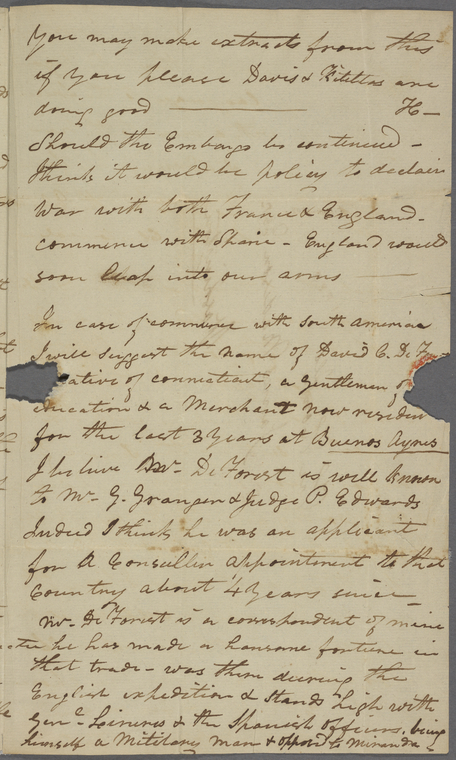 You may make extracts from this
if you please Davis & are
doing good H—
Should the Embargo be continued –
think it would be policy to declair
War with both France & England –
commence with – England would
soon leap into our arms
In case of commerce with South America
I will suggest the name of David C. De
ative of connecticut, a gentleman of
ducation & a Merchant now residen
for the last 3 Years at Buenos Ayres
I believe Mr. De Forest is will known
to Mr. G. Granger & Judge P. Edwards
Indeed I think he was an applicant
for a Consullin appointment to that
Country about 4 Years since
Mr. De Forest is a correspondent of mine
he has made a hansome fortune in
that trade – was there dureing the
English expedition & Stands high with
Genl. Lineres & the Spanish officers, being
himself a Militarey man & oppos'd to Miranda